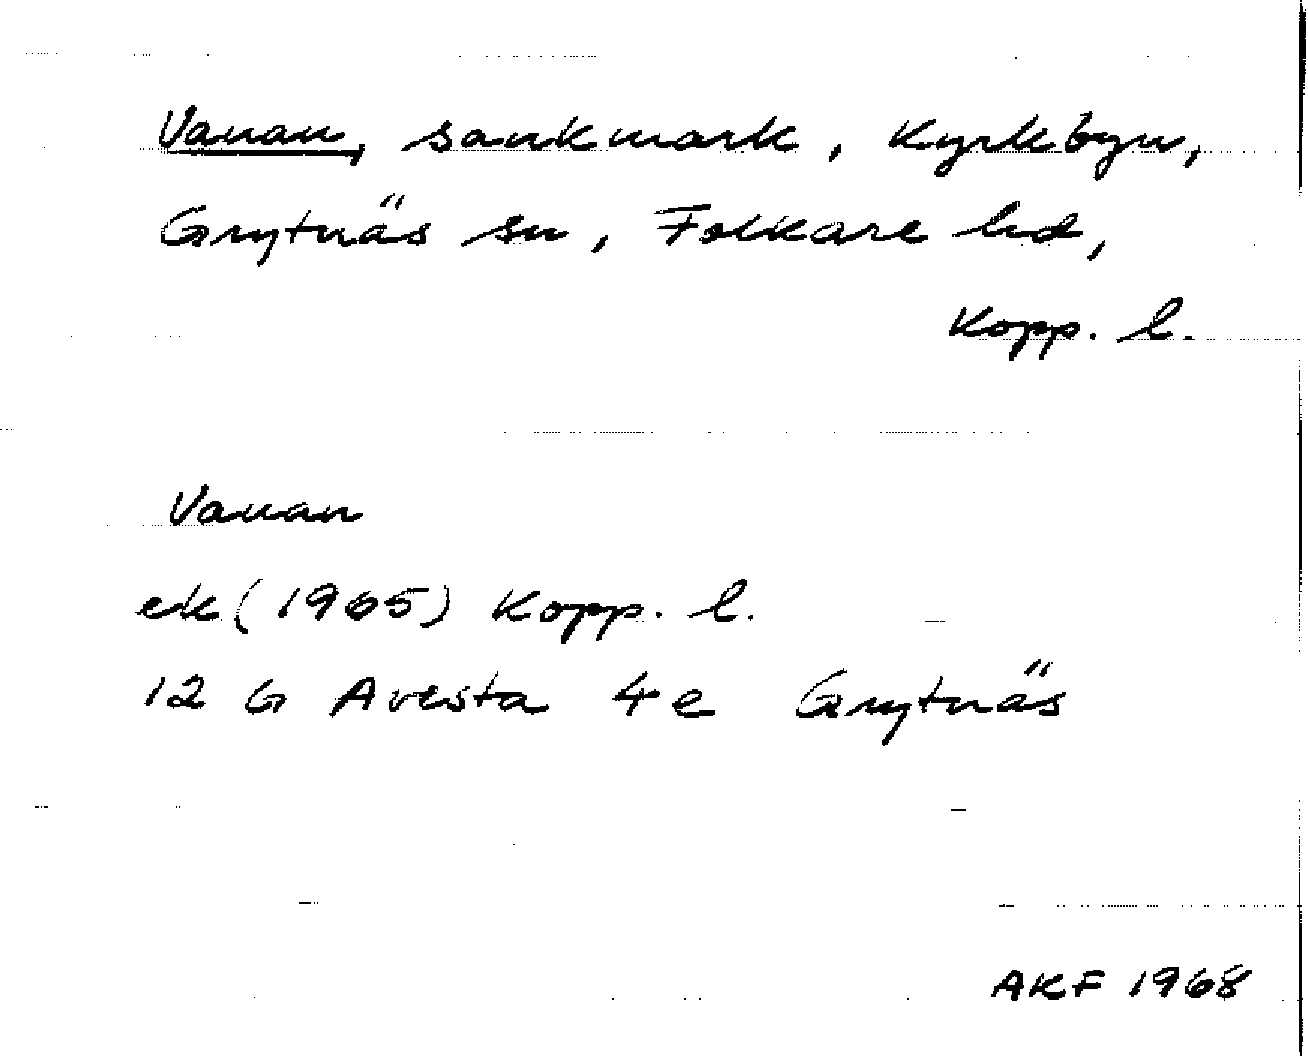 Vanan, sankmark, Kyrkbyn,
Grytnäs sn, Folkare hd,
Kopp. l.
Vanan
ek (1965) Kopp. l.
12 G Avesta 4e Grytnäs
AKF 1968